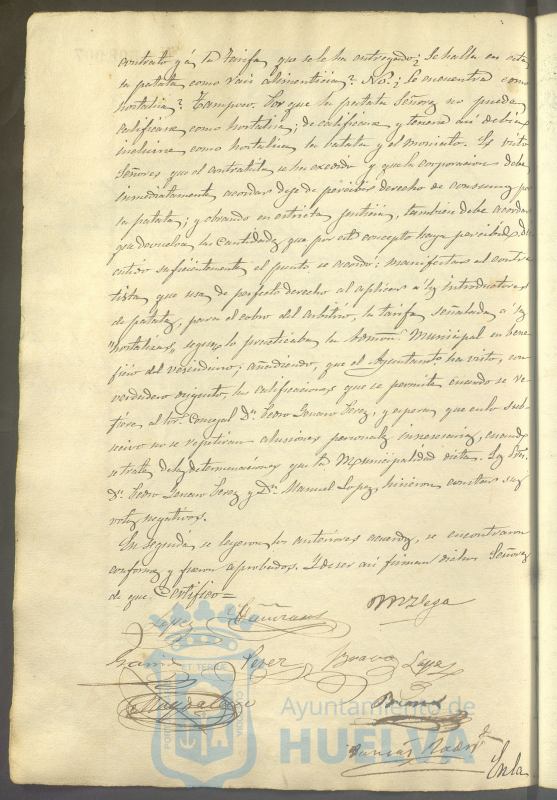 contrato y á la Tarifa que se le ha entregado? Se halla en esta
la patata como raiz alimenticia? No.; Se encuentra como
hortaliza? Tampoco. Por que la patata Señores no puede
calificarse como hortaliza; de calificarse y tenerse así debian
incluirse como hortaliza la batata y el moniato. Es visto
Señores que el contratista se ha excedido y que la corporacion debe
inmediatamente acordar deje de percibir derecho de consumo por
la patata; y obrando en estricta justicia, tambien debe acordar
que devuelva las cantidades que por este concepto haya percibido. Dis-
cutido suficientemente el punto se acordó: manifestar al contra-
tista que usa de perfecto derecho al aplicar á los introductores
de patatas, para el cobro del arbitrio, la tarifa señalada á las
"hortalizas", segun lo practicaba la Admon. Municipal en bene-
ficio del vecindario, añadiendo, que el Ayuntamto ha visto, con
verdadero disgusto, las calificaciones que se permite cuando se re-
fiere, al Sor. Concejal Dn. Pedro Genaro Perez, y espera, que en lo sub-
secivo no se repetiran alusiones personales innecesarias, cuando
se trate de las determinaciones que la Municipalidad dicta. Los Sres.
Dn. Pedro Genaro Perez y Dn. Manuel Lopez, hicieron constar sus
votos negativos.
En seguida se leyeron los anteriores acuerdos, se encontraron
conformes y fueron aprobados. Y de ser así firman dichos Señores
de que Certifico=
Lopez
M Vega
Garcia Perez Bravo Lopez
Garcias Rodrz
En la
Ayuntamiento de
HUELVA